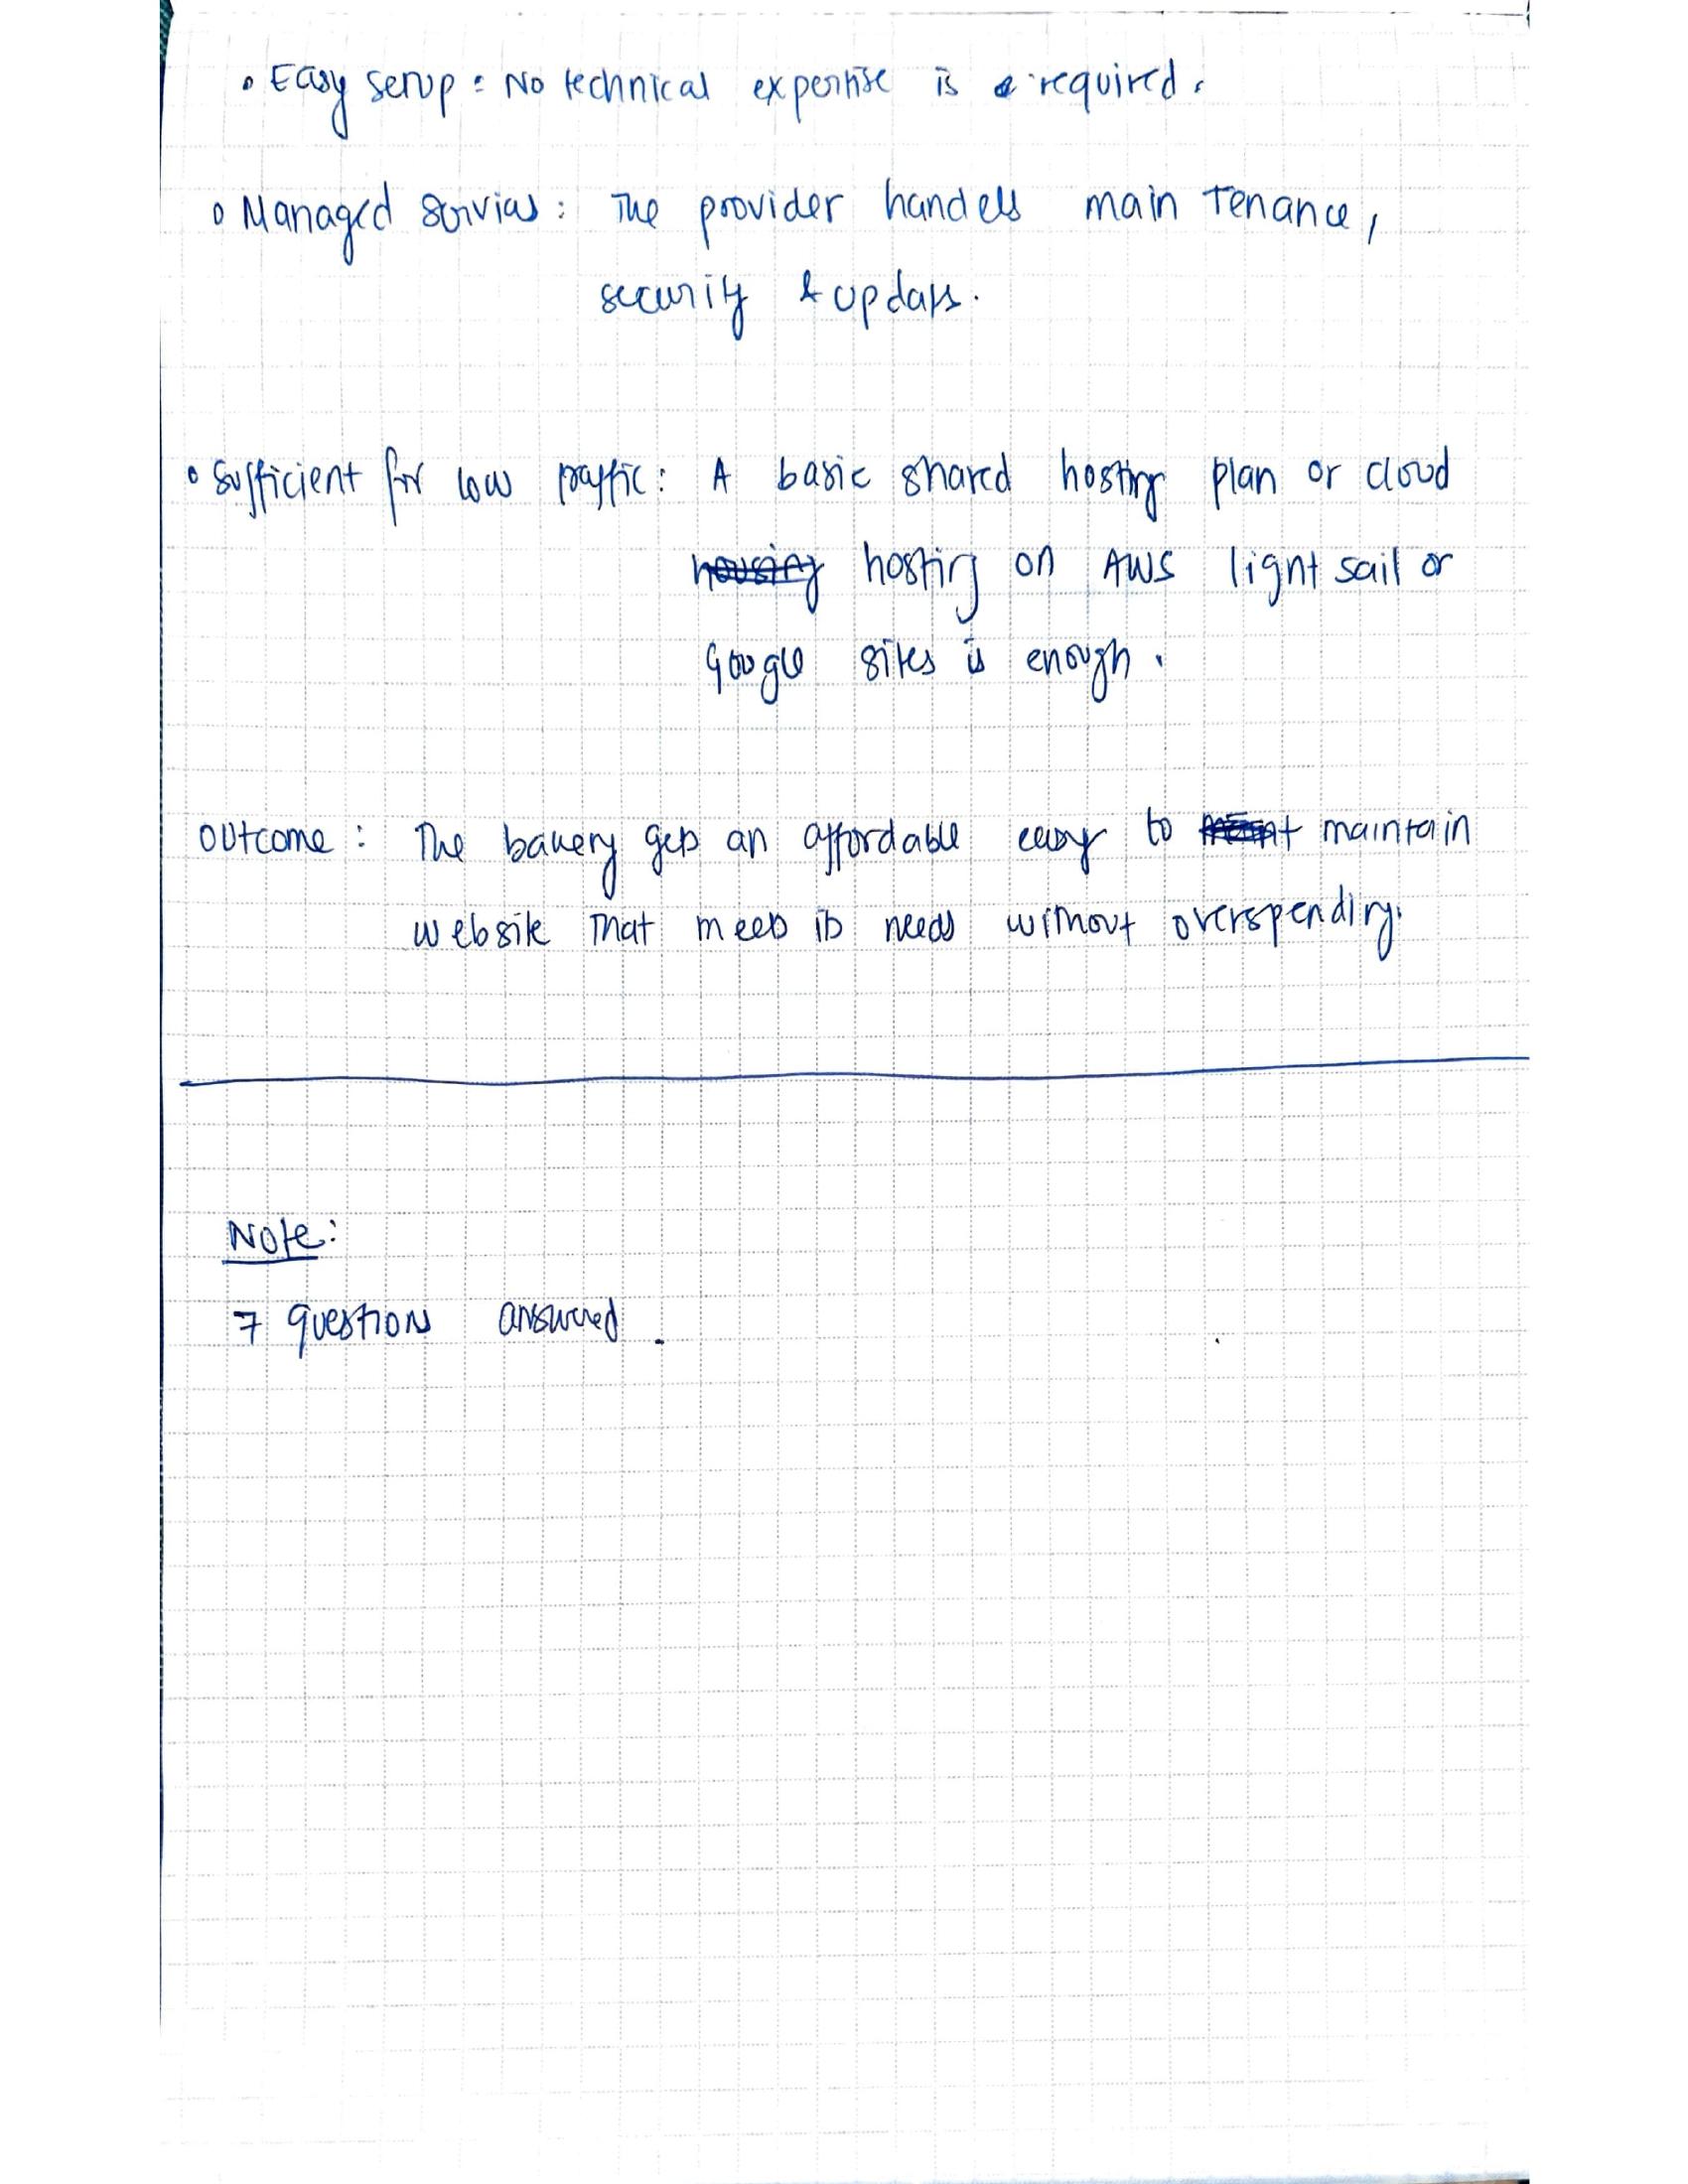 • Easy setup : No technical expertise is required.
• Managed services : The provider handels maintenance,
security & updates.
• Sufficient for low traffic : A basic shared hosting plan or cloud
housing hosting on AWS lightsail or
Google sites is enough.
Outcome : The bakery gets an affordable easy to maintain
website that meets its needs without overspending.
Note:
7 questions answered.